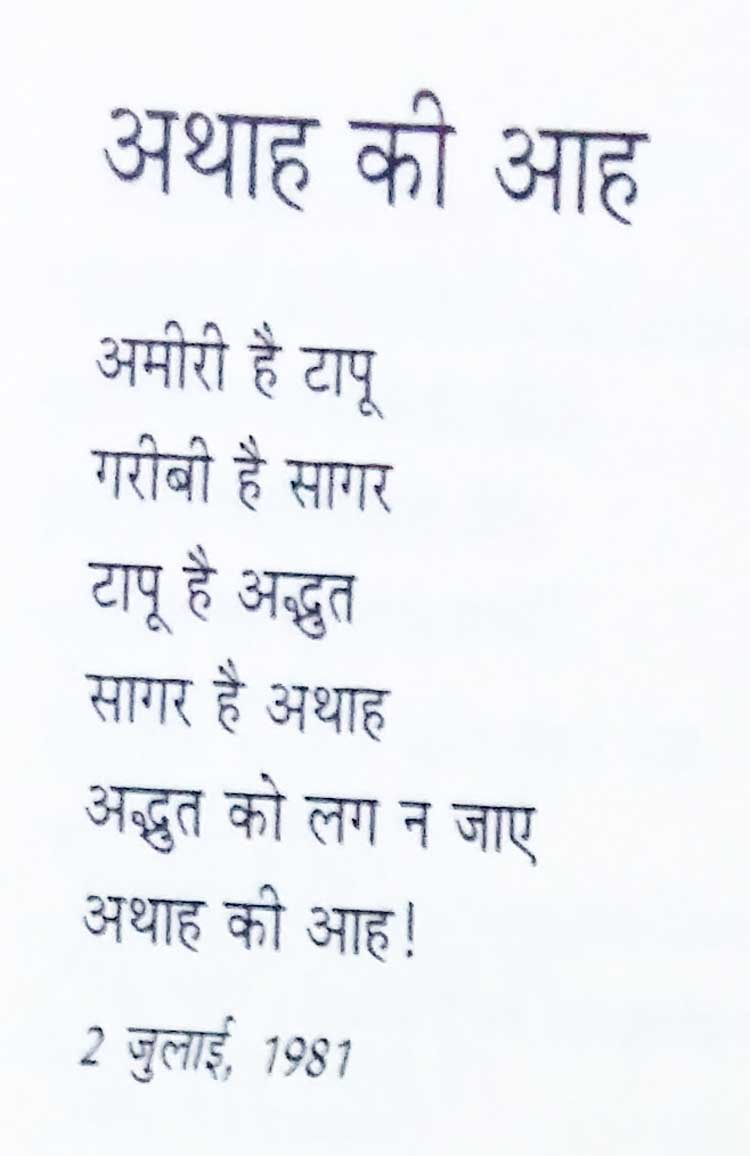 अथाह की आह
अमीरी है टापू
गरीबी है सागर
टापू है अद्भुत
सागर है अथाह
अद्भुत को लग न जाए
अथाह की आह!
2 जुलाई, 1981